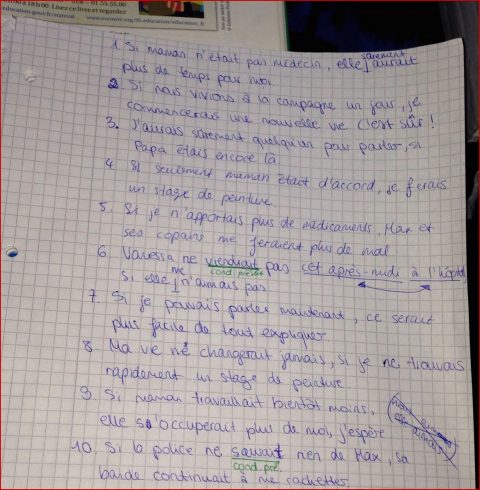 à 18h00. Lisez ce livre et regardez
education.gouv.fr/materiel
01.55.55.00
1. Si maman n'était pas médecin, elle sûrement aurait
plus de temps pour moi.
2. Si nous vivions à la campagne un jour, je
commencerais une nouvelle vie c'est sûr !
3. J'aurais sûrement quelqu'un pour parler, si
Papa étais encore là.
4. Si seulement maman était d'accord, je ferais
un stage de peinture
5. Si je n'apportais plus de médicaments, Max et
ses copains me feraient plus de mal
6. Vanessa ne viendrait pas cet après-midi à l'hôpital,
cond. présent
si elle me n'aimais pas
7. Si je pouvais parler maintenant, ce serait
plus facile de tout expliquer
8. Ma vie ne changerait jamais, si je ne trouvais
rapidement un stage de peinture
9. Si maman travaillait bientôt moins,
elle s'occuperait plus de moi, j'espère.
10. Si la police ne savait rien de Max, sa
cond. pré.
bande continuait à me